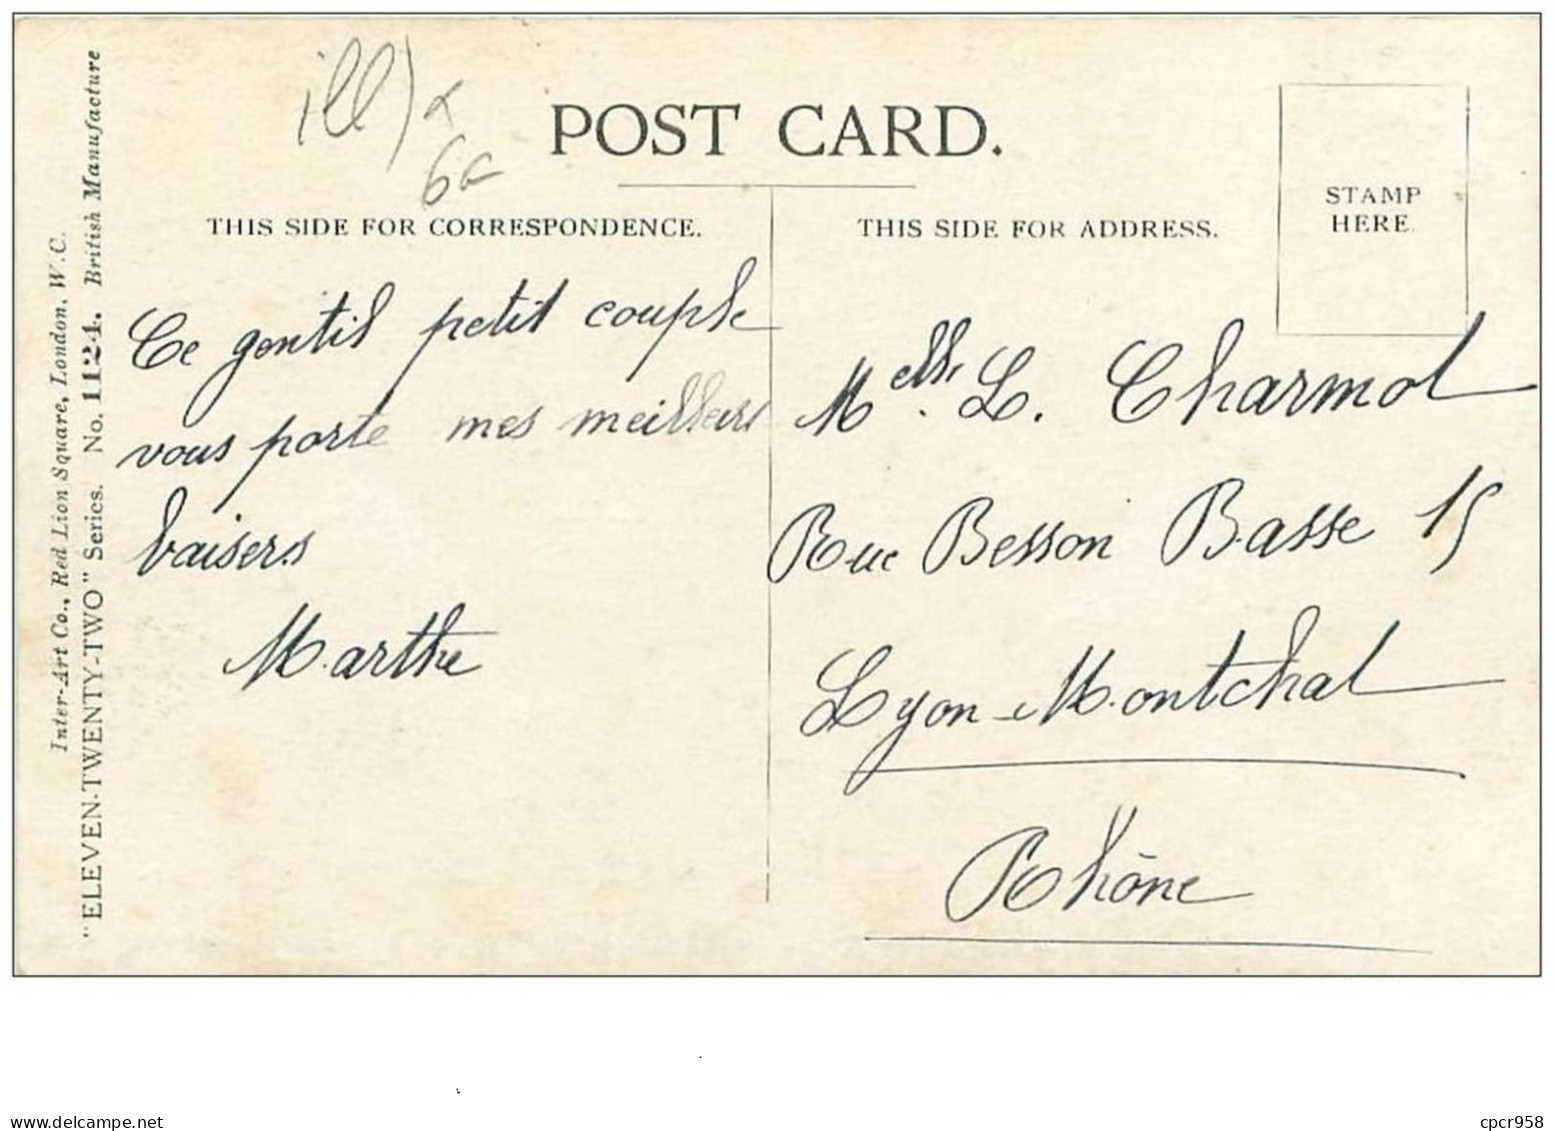 ill)
POST CARD.
THIS SIDE FOR CORRESPONDENCE.
THIS SIDE FOR ADDRESS.
STAMP
HERE.
Ce gentil petit couple
vous porte mes meilleurs
baisers
Marthe
Melle. L. Charmot
Rue Besson Basse 15
Lyon-Montchat
Rhône
Inter-Art Co., Red Lion Square, London, W.C.
"ELEVEN-TWENTY-TWO" Series. No. 1124. British Manufacture
www.delcampe.net
cpcr958